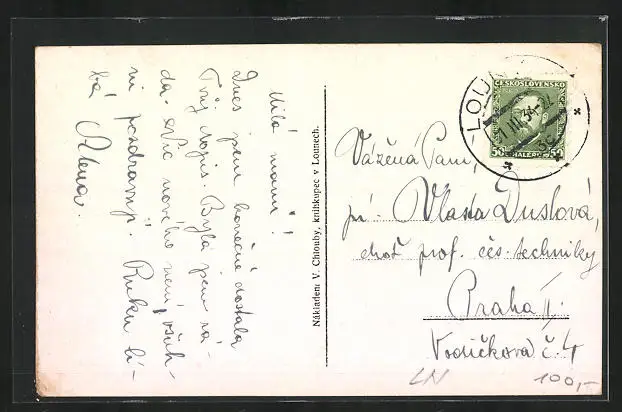 Milá mami!
Dnes jsem konečně dostala
Tvůj dopis. Byla jsem rá-
da. Nic nového není, všich-
ni pozdravují. Ruku lí-
bá Alena.
Nákladem V. Chlouby, knihkupec v Lounech.
ČESKOSLOVENSKO
50 HALÉŘŮ 50
LOUNY
1.III.34
5c
Vážená Paní,
pí. Vlasta Duslová,
choť prof. čes. techniky
Praha II.
Vodičkova č. 4
LN
100,-